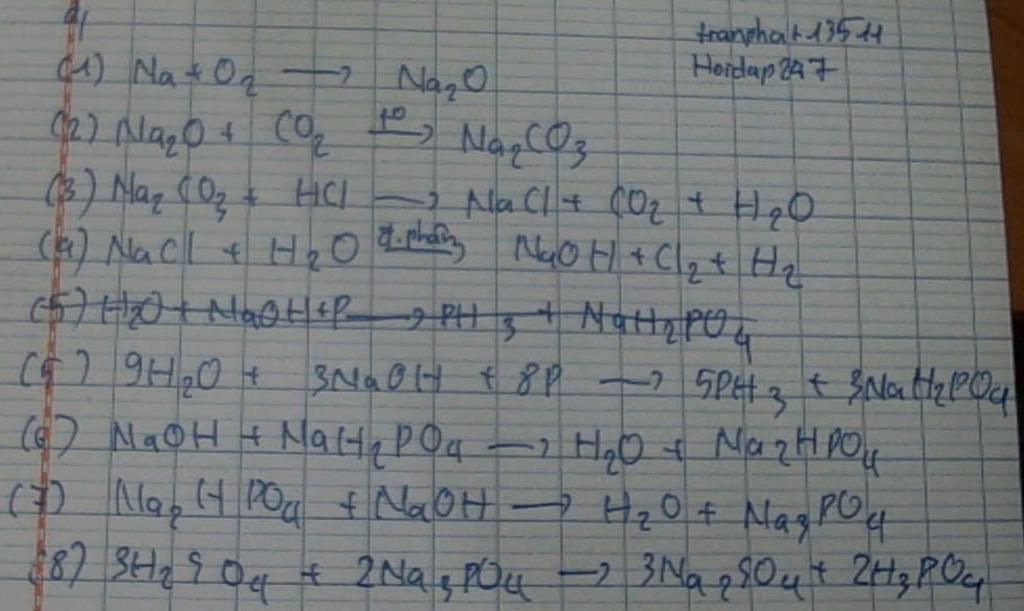 a,
tranphat13511
Hoidap247
(1) Na + O₂ ⟶ Na₂O
(2) Na₂O + CO₂ t⁰⟶ Na₂CO₃
(3) Na₂CO₃ + HCl ⟶ NaCl + CO₂ + H₂O
(4) NaCl + H₂O đ.phân⟶ NaOH + Cl₂ + H₂
(5) H₂O + NaOH + P ⟶ PH₃ + NaH₂PO₄
(5) 9H₂O + 3NaOH + 8P ⟶ 5PH₃ + 3NaH₂PO₄
(6) NaOH + NaH₂PO₄ ⟶ H₂O + Na₂HPO₄
(7) Na₂HPO₄ + NaOH ⟶ H₂O + Na₃PO₄
(8) 3H₂SO₄ + 2Na₃PO₄ ⟶ 3Na₂SO₄ + 2H₃PO₄